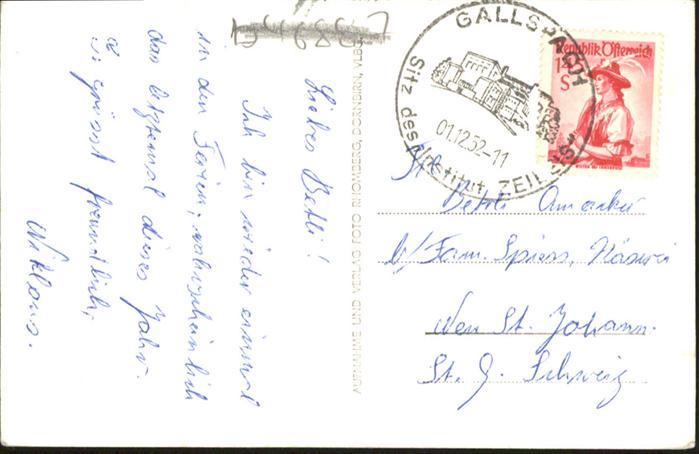 Liebes Betli!
Ich bin wieder einmal
in den Ferien, wahrscheinlich
das letztemal dieses Jahr.
grüsst freundlich,
Niklaus.
AUFNAHME UND VERLAG FOTO RHOMBERG, DORNBIRN
GALLSPACH
Sitz des Institut ZEILEIS
01.12.52-11
Republik Österreich
S
Betli
b/Fam. Spiess,
St. Johann.
St. G. Schweiz